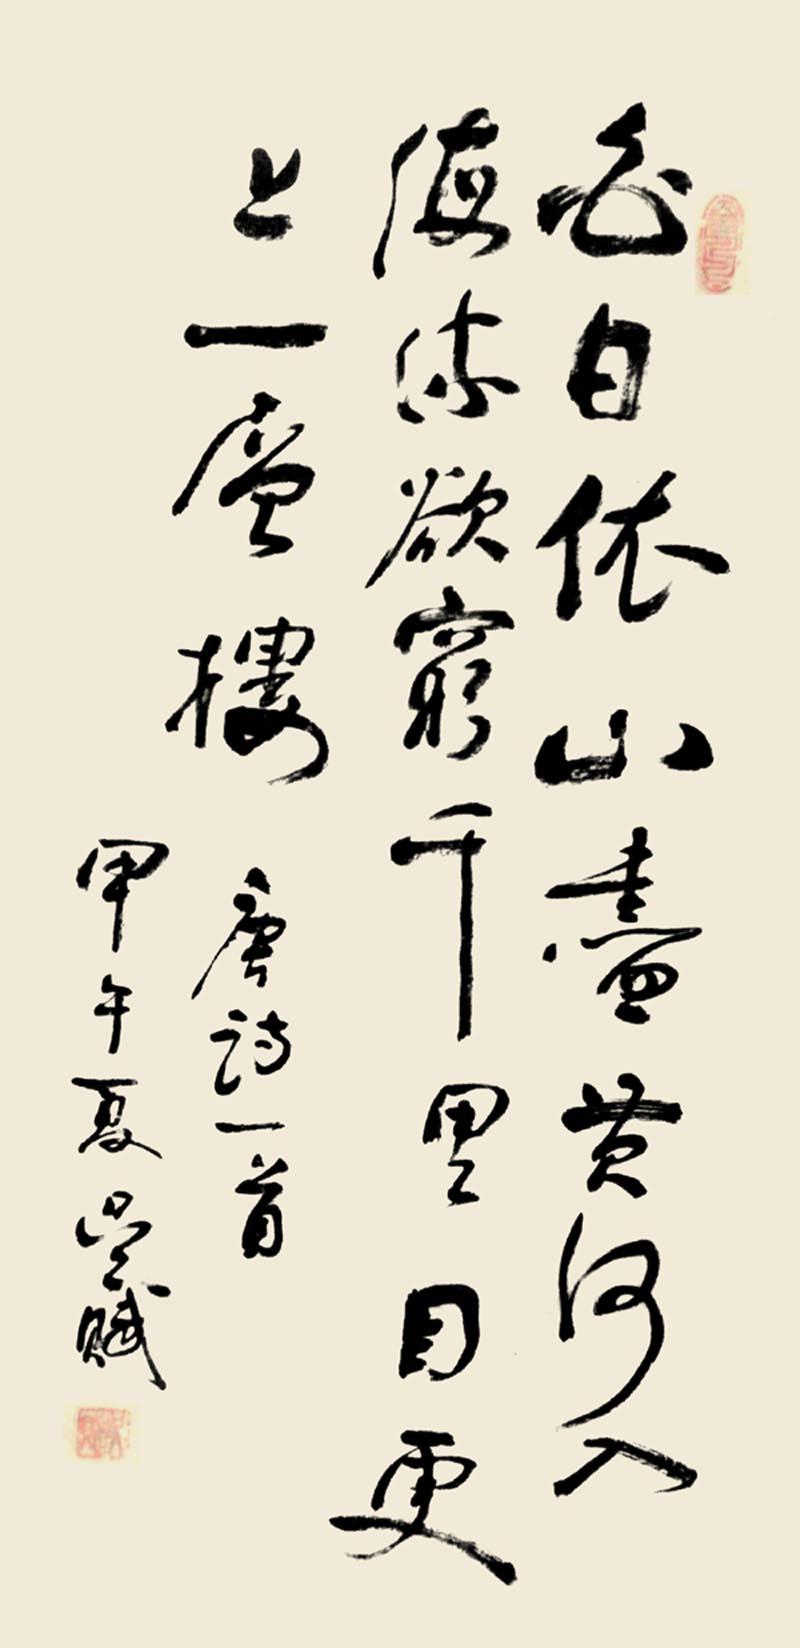 白日依山盡黄河入
海流欲窮千里目更
上一層樓
唐詩一首
甲午夏